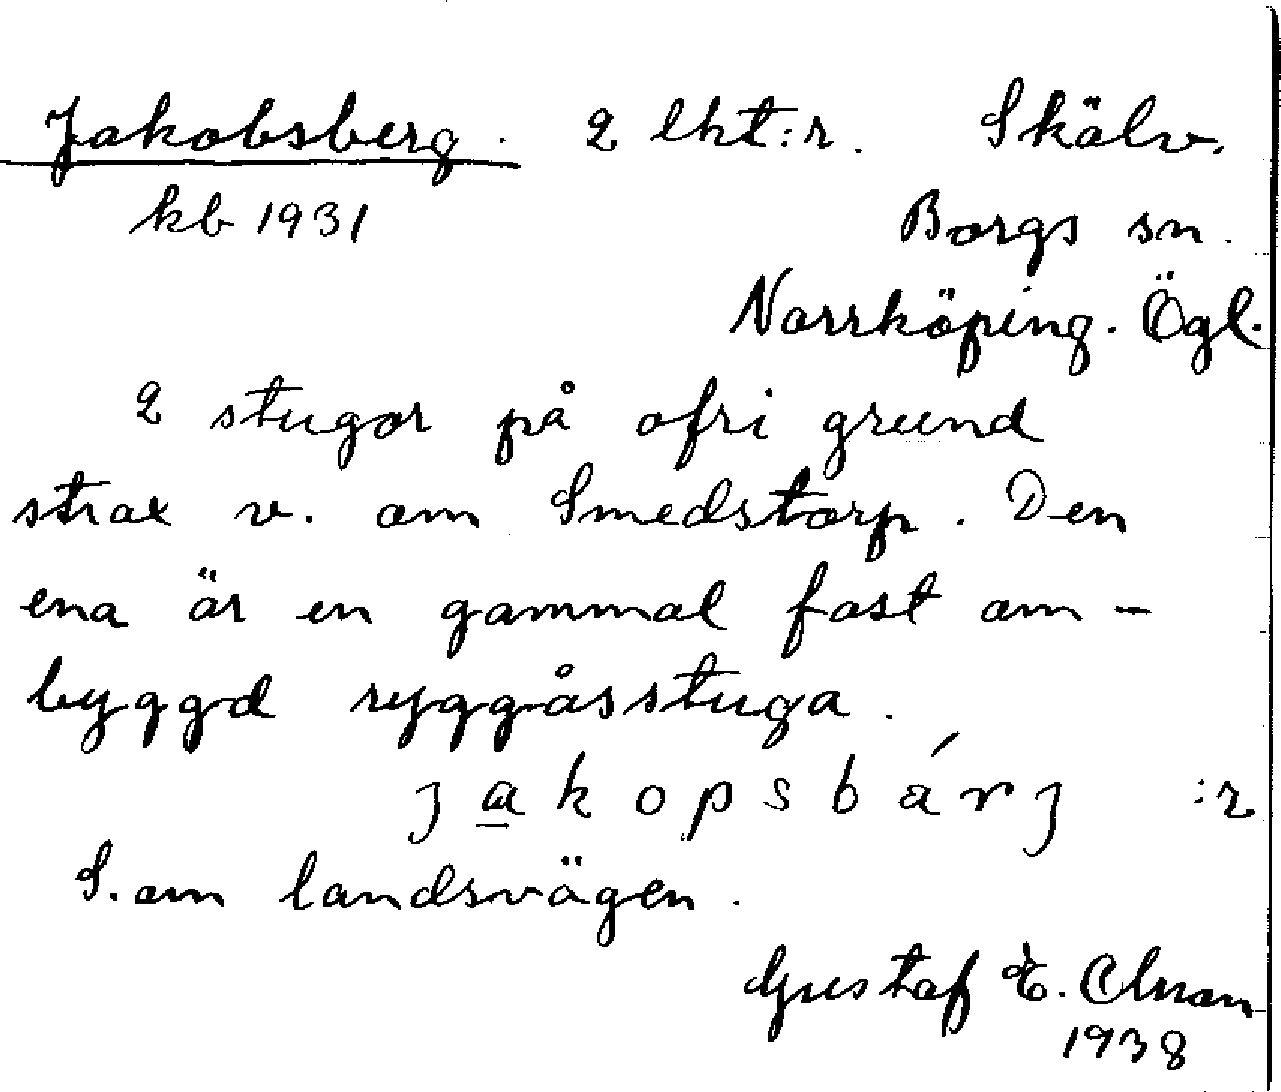 Jakobsberg. 2 lht:r. Skälv.
kb 1931
Borgs sn.
Norrköping. Ögl.
2 stugor på ofri grund
strax v. om Smedstorp. Den
ena är en gammal fast om-
byggd ryggåsstuga.
jakopsbárj :r
S. om landsvägen.
Gustaf E.
1938